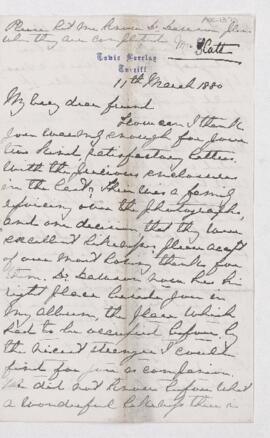 Please let me know Dr Dawson's plan
when they are completed
Mr Slater
Towie Barclay
Turriff
11th March 1880
My very dear friend
How can I thank
you warmly enough for your
two kind, satisfactory letters
with the precious enclosures
in the last. There was a family
rejoicing over the photographs,
and one decision, that they were
excellent likenesses, please accept
of our most loving thanks for
them. Dr Dawson now has his
right place beside you in
my album, the place which
had to be occupied before by
the nicest stranger I could
find for you as companion.
We did not know before what
a wonderful likeness there is